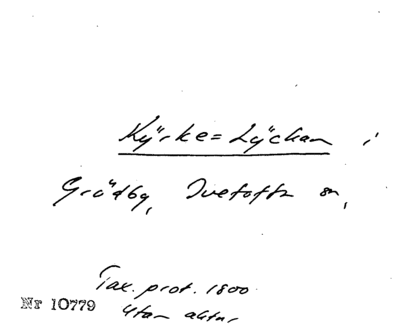 Kÿrke=Lÿckan i
Grödby, Ivetofta sn,
Tax. prot. 1800
Nr 10779 utan aktnr